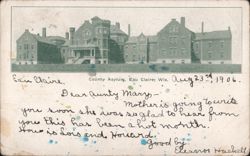 County Asylum, Eau Claire, Wis.
Eau Claire, Aug 23rd 1906.
Dear Aunty Mary,-
Mother is going to write
you soon she was so glad to hear from
you this has been a hot month.
How is Lois and Howard.
Good by
Eleanor Hackett